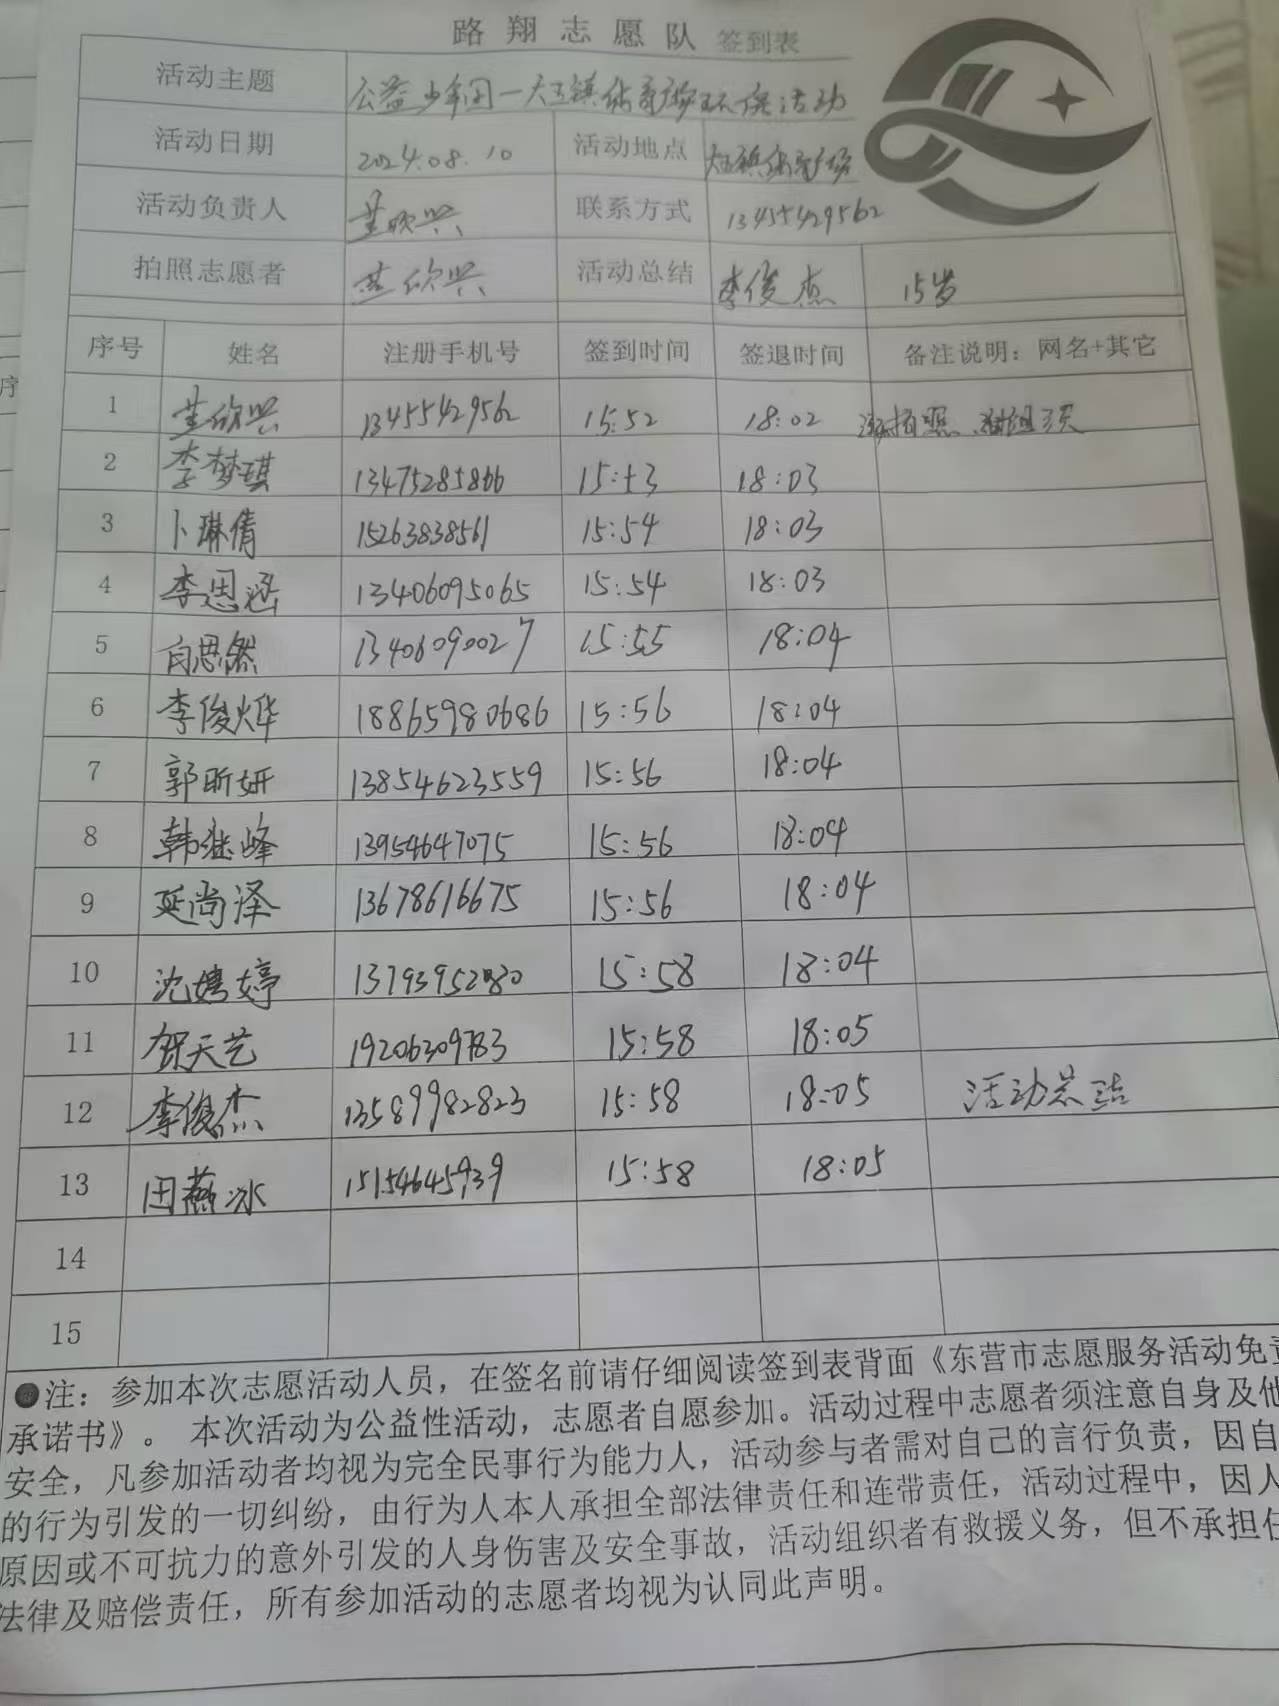 路翔志愿队 签到表
活动主题 公益少年团一大王镇体育广场环保活动
活动日期 2024.08.10 活动地点 大王镇体育广场
活动负责人 董欣兴 联系方式 13455429562
拍照志愿者 董欣兴 活动总结 李俊杰 15岁
序号 姓名 注册手机号 签到时间 签退时间 备注说明：网名+其它
1 董欣兴 13455429562 15:52 18:02 拍照
2 李梦琪 13475285866 15:53 18:03
3 卜琳倩 15263838561 15:54 18:03
4 李恩涵 13406095065 15:54 18:03
5 向思然 13406090027 15:55 18:04
6 李俊烨 18865980686 15:56 18:04
7 郭昕妍 13854623559 15:56 18:04
8 韩继峰 13954647075 15:56 18:04
9 延尚泽 13678616675 15:56 18:04
10 沈婷 13793952880 15:58 18:04
11 贺天艺 19206309783 15:58 18:05
12 李俊杰 13589982823 15:58 18:05 活动总结
13 田燕冰 15154645939 15:58 18:05
14
15
●注：参加本次志愿活动人员，在签名前请仔细阅读签到表背面《东营市志愿服务活动免责
承诺书》。 本次活动为公益性活动，志愿者自愿参加。活动过程中志愿者须注意自身及他
安全，凡参加活动者均视为完全民事行为能力人，活动参与者需对自己的言行负责，因自
的行为引发的一切纠纷，由行为人本人承担全部法律责任和连带责任，活动过程中，因人
原因或不可抗力的意外引发的人身伤害及安全事故，活动组织者有救援义务，但不承担任
法律及赔偿责任，所有参加活动的志愿者均视为认同此声明。